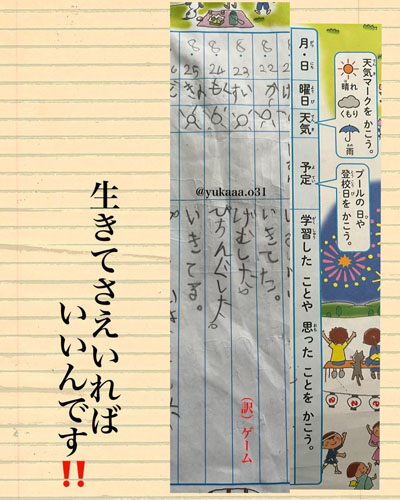 天気マークを かこう。
晴れ
くもり
雨
プールの日や
登校日を かこう。
月・日
曜日
天気
予定
学習した ことや 思った ことを かこう。
8 22 か いきてた。
8 23 すい げむした。
8 24 もく
8 25 きん いきてる。
(訳)ゲーム
@yukaaa.o31
生きてさえいれば
いいんです‼️